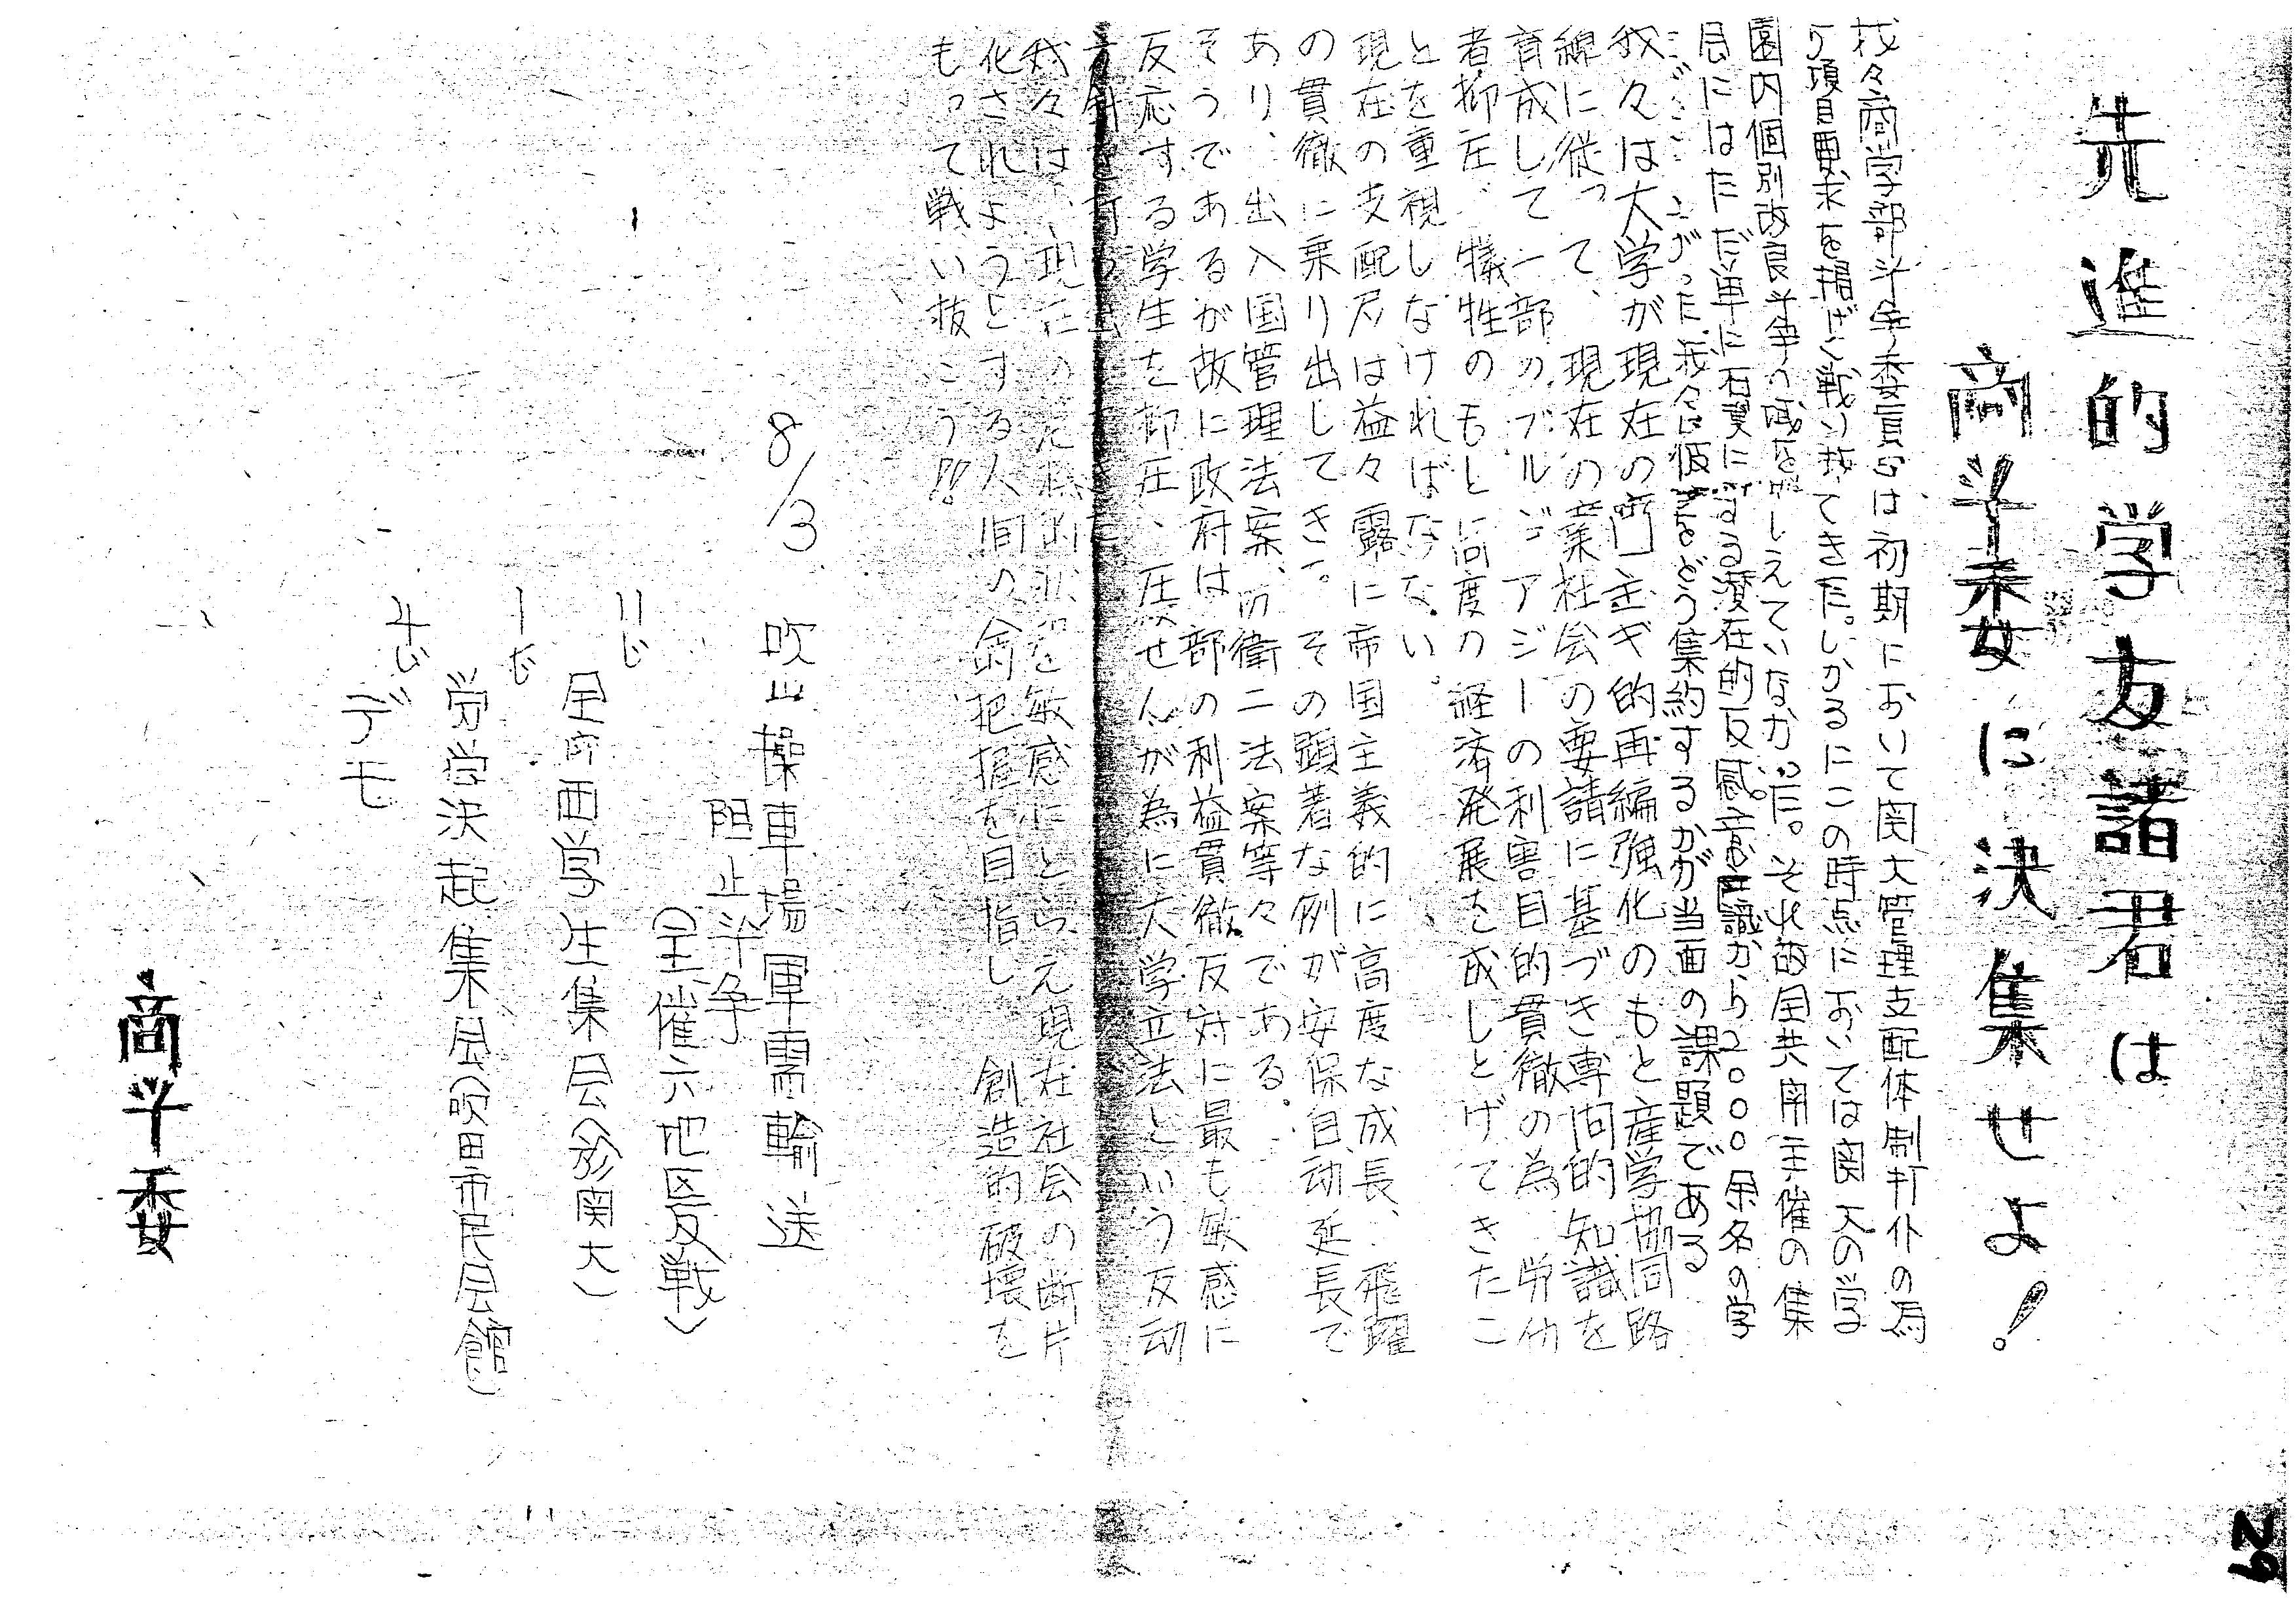 先進的学友諸君は
商斗委に決集せよ!
我々商学部斗争委員会は初期において関大管理支配体制打仆の為
項目要求を掲げ戦い抜いてきた。しかるにこの時点においては関大の学
園内個別改良斗争の域を しえていなかった。それ故全共斗主催の集
会にはただ単に石翼に する潜在的反感意識から2000余名の学
我々は彼 をどう集約するかが当面の課題である
我々は大学が現在の 主ギ的再編強化のもと産学協同路
線に従って、現在の産業社会の要請に基づき専門的知識を
育成して一部のブルジョアジーの利害目的貫徹の為 労仂
者抑圧、犠牲のもと高度の経済発展を成しとげてきたこ
とを重視しなければならない。
現在の支配层は益々露に帝国主義的に高度な成長、飛躍
の貫徹に乗り出してきた。その顕著な例が安保自动延長で
あり、出入国管理法案、防衛二法案等々である。
そうであるが故に政府は一部の利益貫徹反対に最も敏感に
反応する学生を抑圧、圧殺せんが為に大学立法という反动
我々は、現在の 状況を敏感にとらえ現在社会の断片
化されようとする人間の全的把握を目指し 創造的破壊を
もって戦い抜こう!!
8/3 吹田操車場軍需輸送
阻止斗争
(主催六地区反戦)
11じ 全関西学生集会(於関大)
1じ 労学決起集会(吹田市民会館)
4じ デモ
商斗委
29